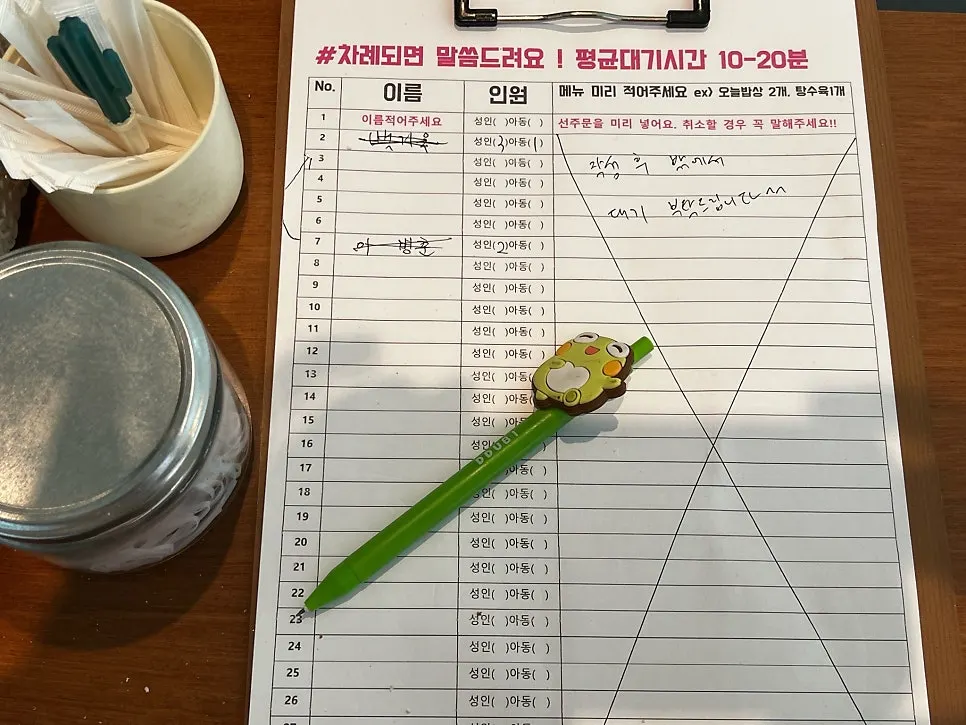 #차례되면 말씀드려요 ! 평균대기시간 10-20분
No. 이름 인원 메뉴 미리 적어주세요 ex) 오늘밥상 2개, 탕수육1개
1 이름적어주세요 성인( )아동( ) 선주문을 미리 넣어요. 취소할 경우 꼭 말해주세요!!
2 성인(3)아동(1)
3 성인( )아동( ) 작성 후 밖에서
4 성인( )아동( )
5 성인( )아동( ) 대기 부탁드립니다^^
6 성인( )아동( )
7 성인(2)아동( )
8 성인( )아동( )
9 성인( )아동( )
10 성인( )아동( )
11 성인( )아동( )
12 성인( )아동( )
13 성인( )아동( )
14 성인( )아동( )
15 성인( )
16 성인( )아동( )
17 아동( )
18 성인( )아동( )
19 성인( )아동( )
20 성인( )아동( )
21 성인( )아동( )
22 성인( )아동( )
23 성인( )아동( )
24 성인( )아동( )
25 성인( )아동( )
26 성인( )아동( )
DDUBI